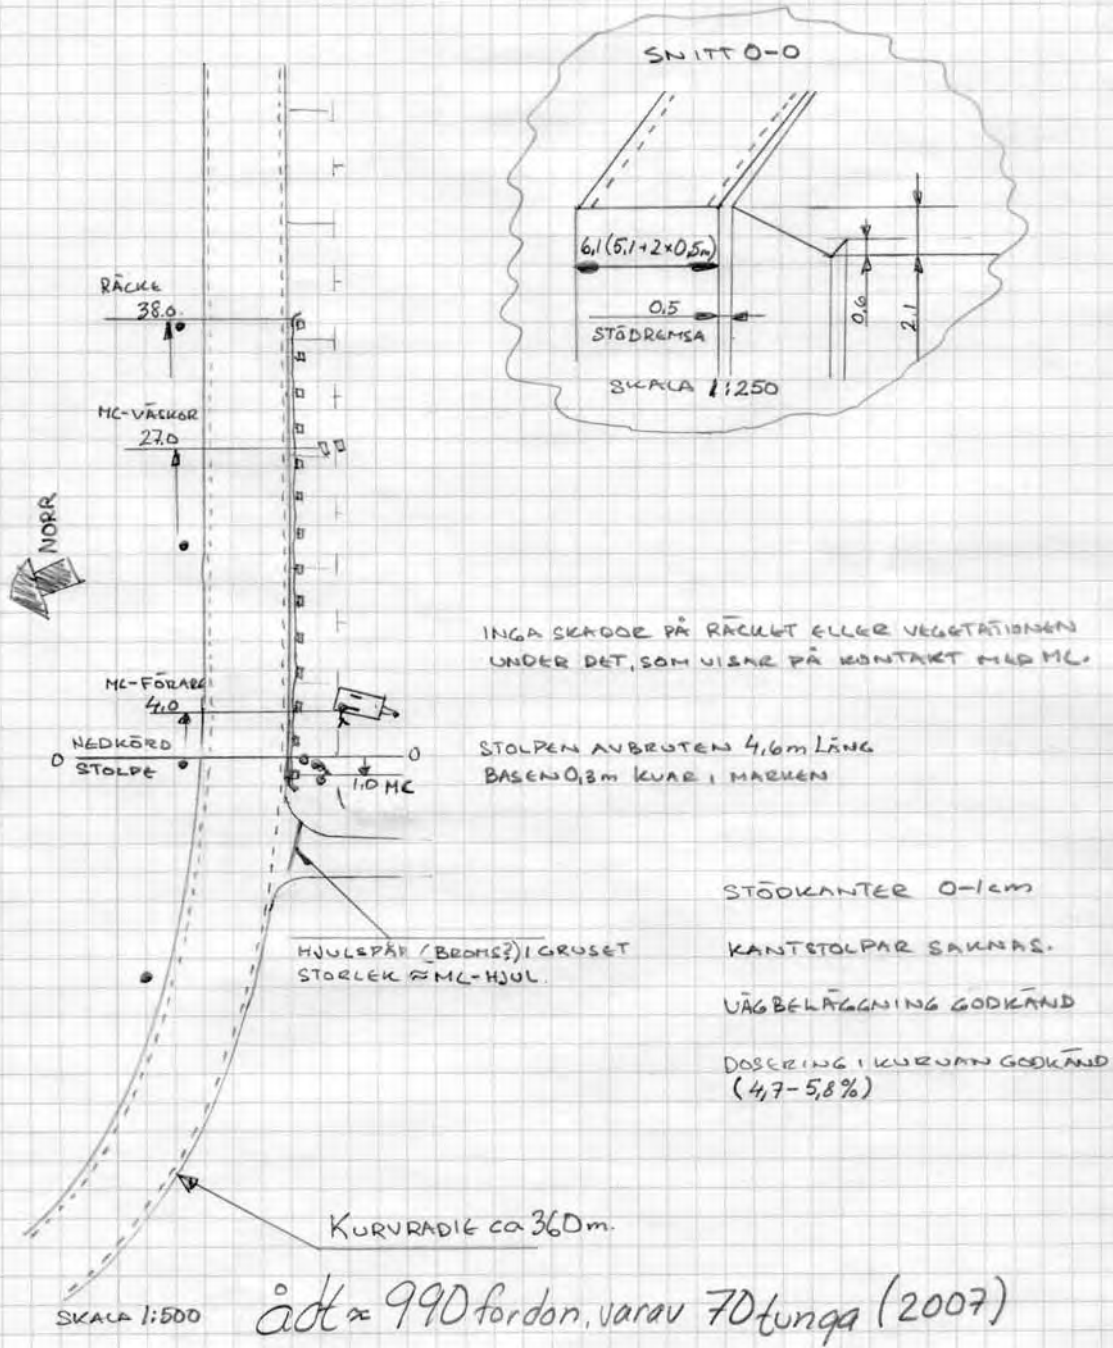 SNITT 0-0
6,1(5,1+2×0,5m)
0,5
STÖDREMSA
0,6
2,1
SKALA 1:250
RÄCKE
38.0
MC-VÄSKOR
27.0
NORR
MC-FÖRARE
4.0
0 NEDKÖRD 0
STOLPE
1.0 MC
INGA SKADOR PÅ RÄCKET ELLER VEGETATIONEN
UNDER DET, SOM VISAR PÅ KONTAKT MED MC.
STOLPEN AVBRUTEN 4,6m LÅNG
BASEN 0,3m KVAR I MARKEN
HJULSPÅR (BROMS?) I GRUSET
STORLEK ≈ MC-HJUL.
STÖDKANTER 0-1cm
KANTSTOLPAR SAKNAS.
VÄGBELÄGGNING GODKÄND
DOSERING I KURVAN GODKÄND
(4,7-5,8%)
KURVRADIE ca 360m.
SKALA 1:500
ådt ≈ 990 fordon, varav 70 tunga (2007)